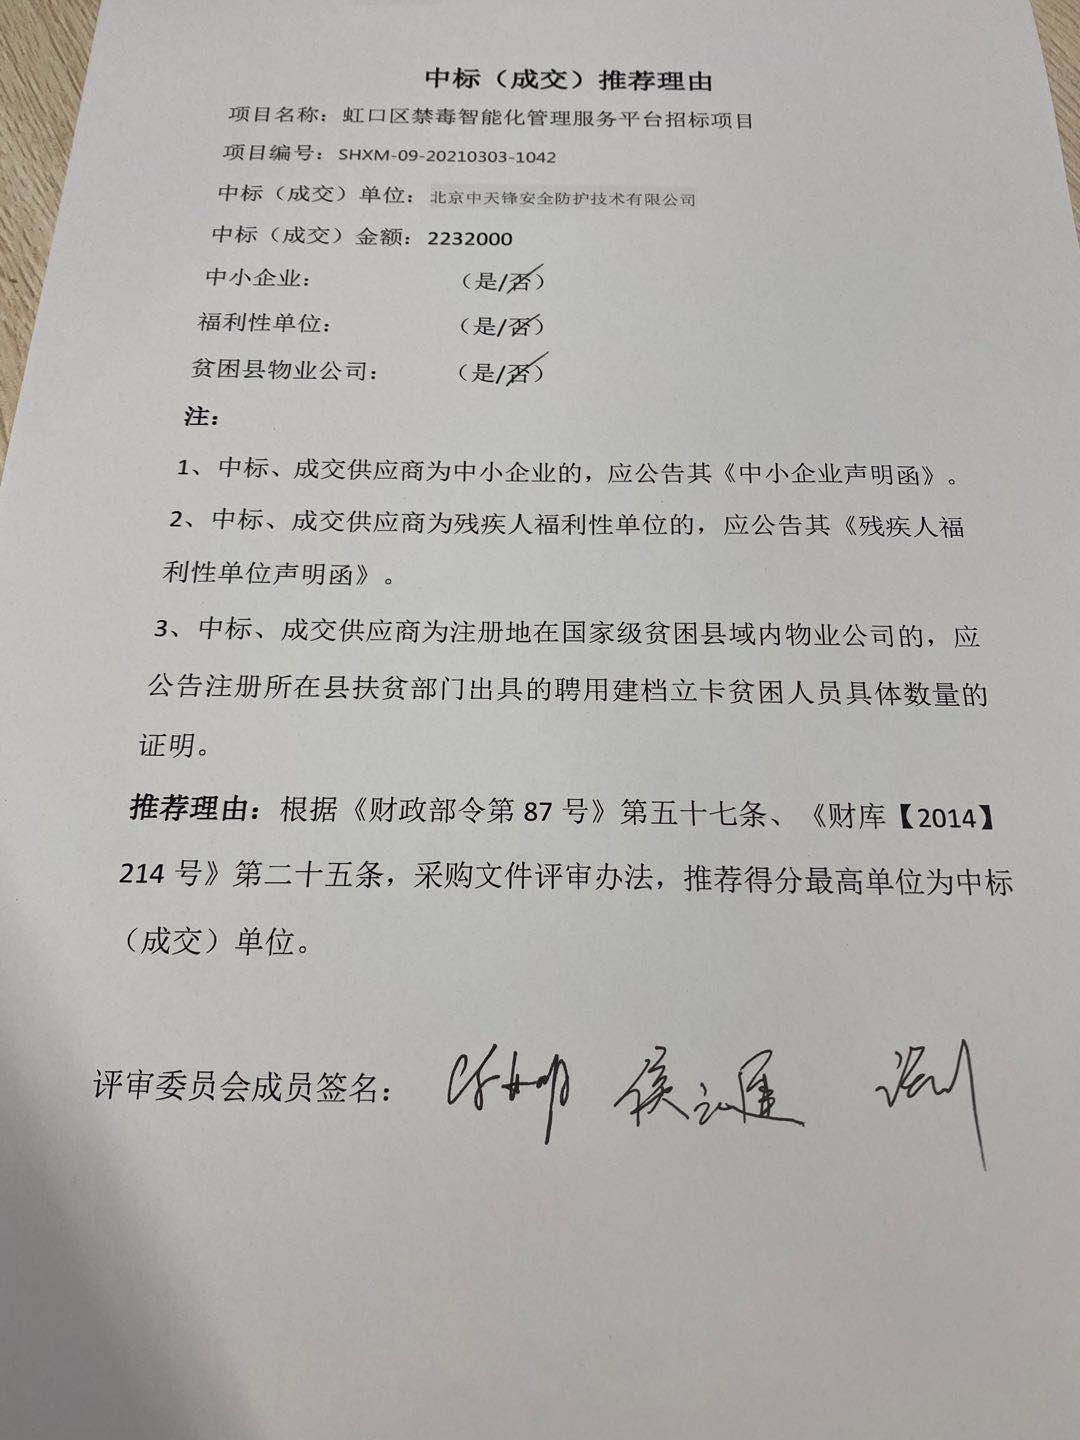 中标（成交）推荐理由
项目名称：虹口区禁毒智能化管理服务平台招标项目
项目编号：SHXM-09-20210303-1042
中标（成交）单位：北京中天锋安全防护技术有限公司
中标（成交）金额：2232000
中小企业： （是/否）
福利性单位： （是/否）
贫困县物业公司： （是/否）
注：
1、中标、成交供应商为中小企业的，应公告其《中小企业声明函》。
2、中标、成交供应商为残疾人福利性单位的，应公告其《残疾人福
利性单位声明函》。
3、中标、成交供应商为注册地在国家级贫困县域内物业公司的，应
公告注册所在县扶贫部门出具的聘用建档立卡贫困人员具体数量的
证明。
推荐理由：根据《财政部令第 87 号》第五十七条、《财库【2014】
214 号》第二十五条，采购文件评审办法，推荐得分最高单位为中标
（成交）单位。
评审委员会成员签名：